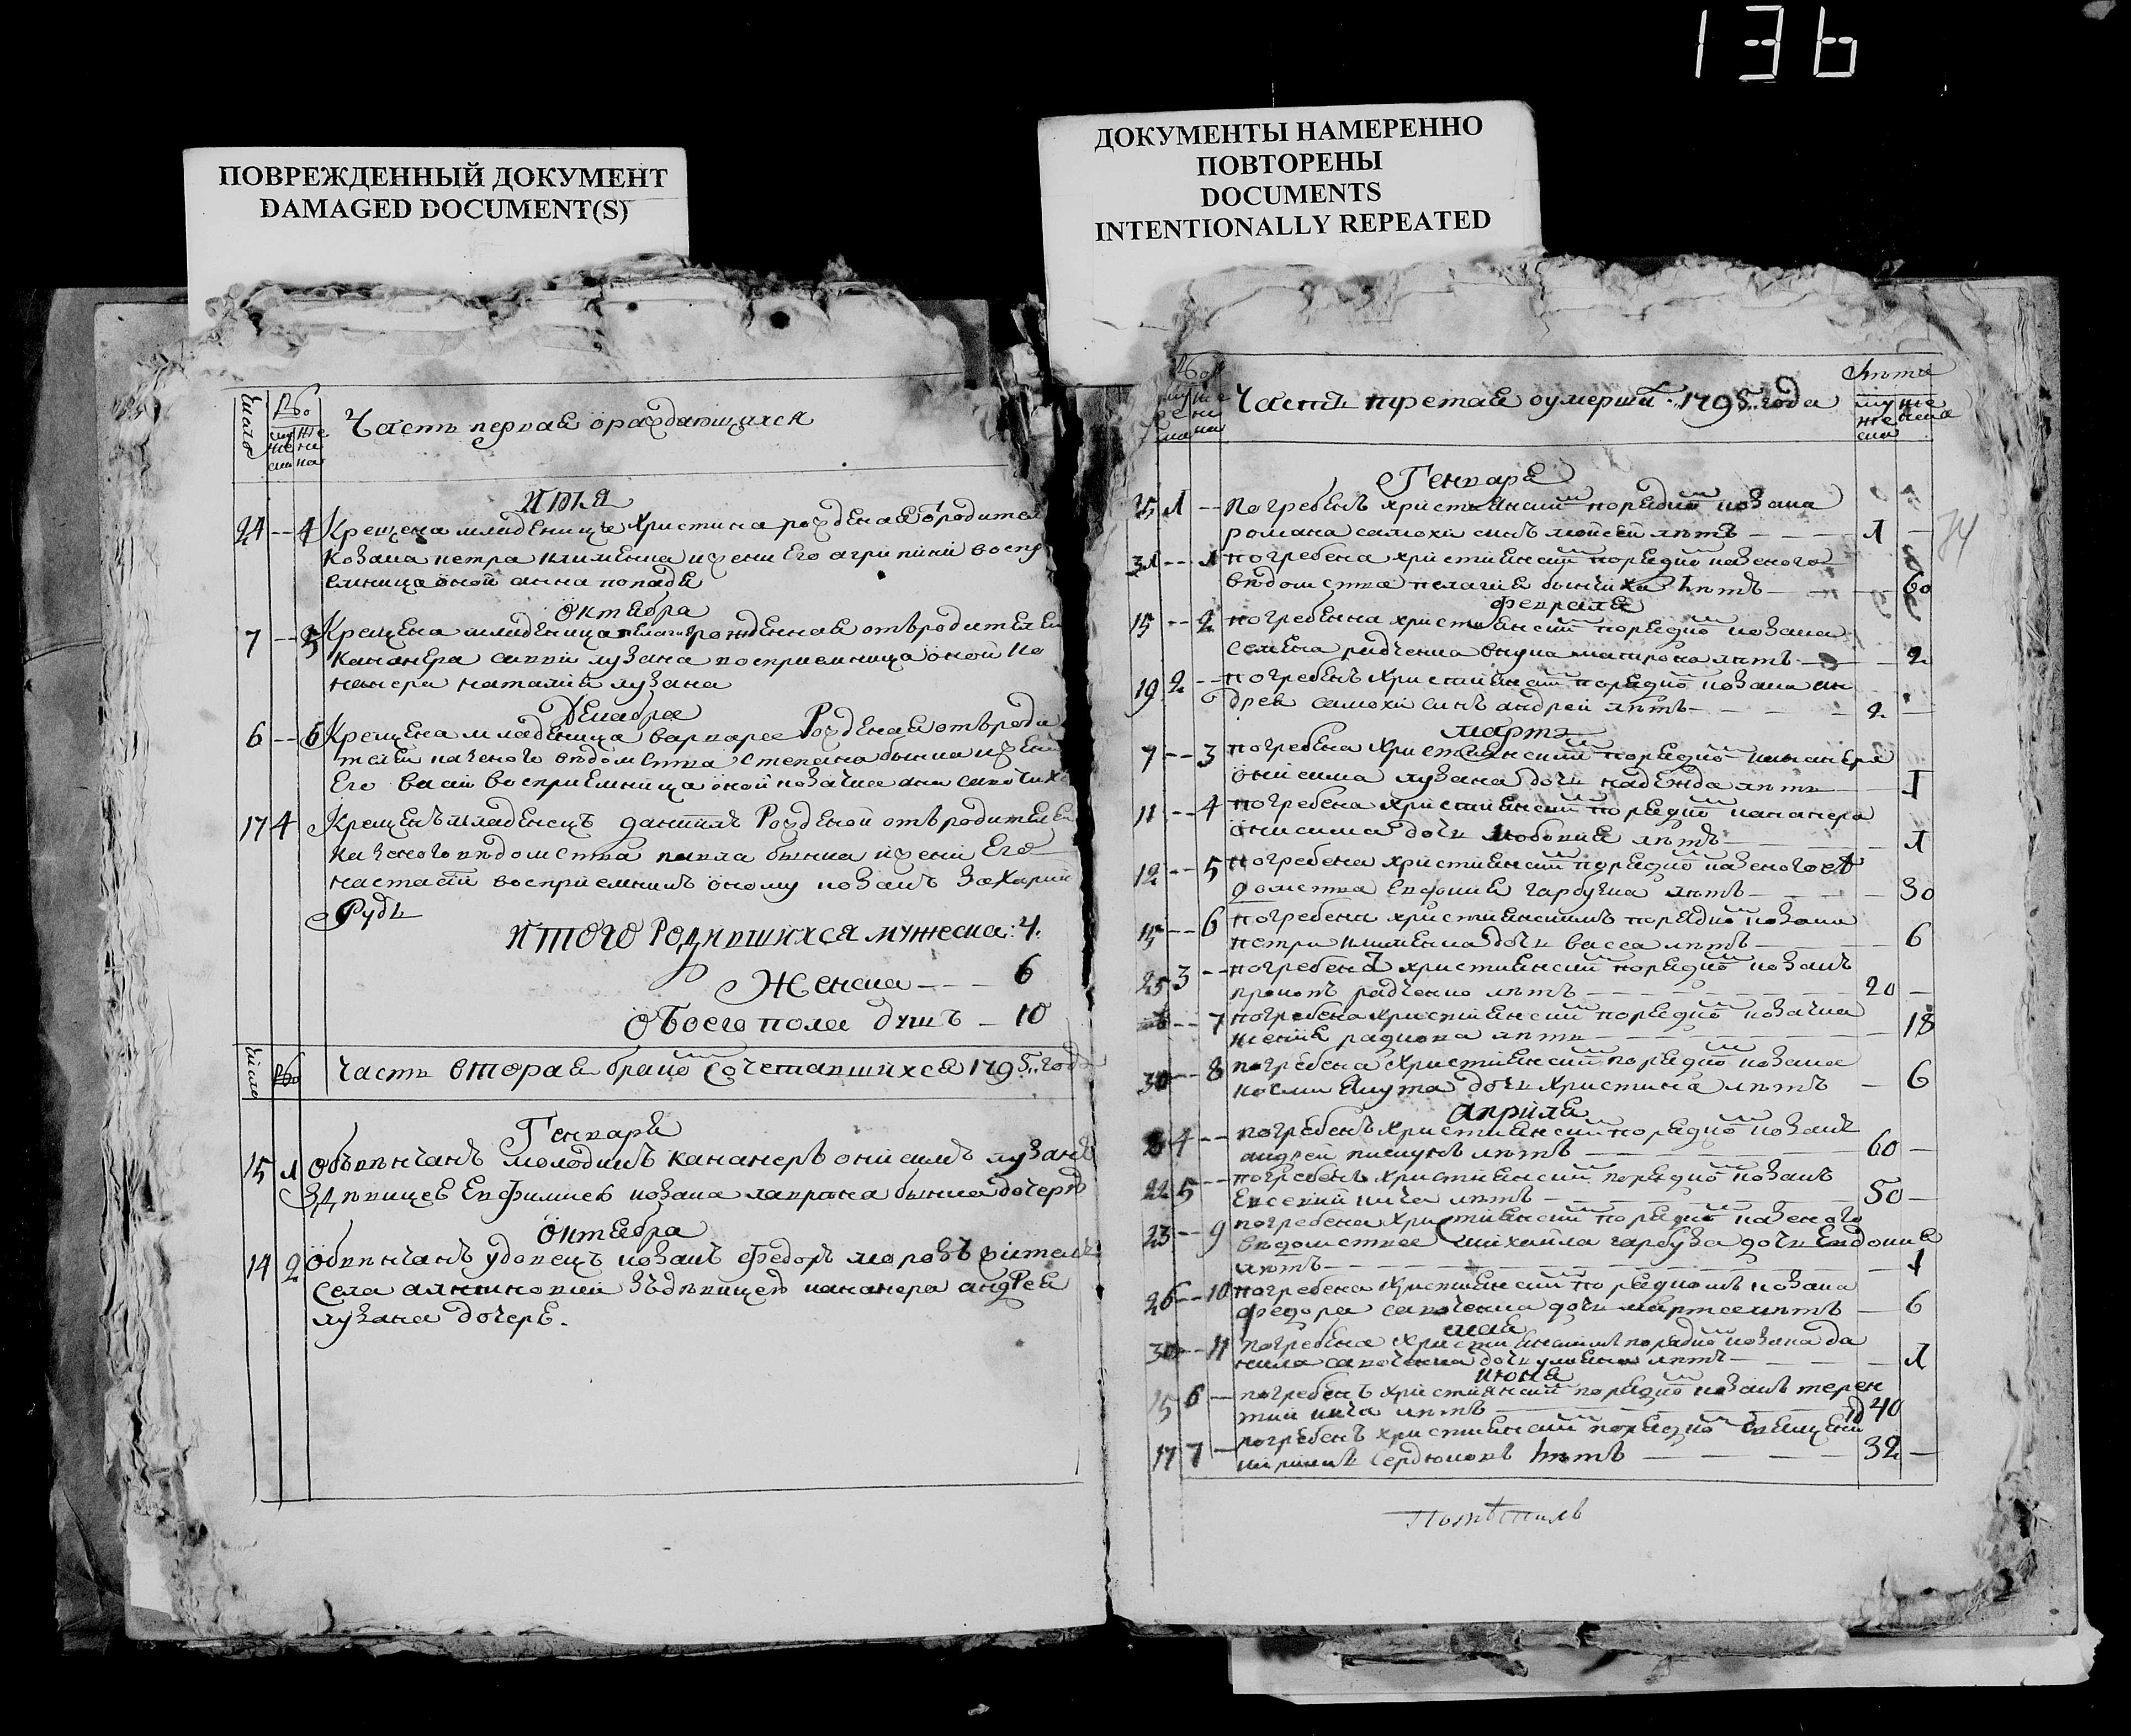 136
ПОВРЕЖДЕННЫЙ ДОКУМЕНТ
DAMAGED DOCUMENT(S)
ДОКУМЕНТЫ НАМЕРЕННО
ПОВТОРЕНЫ
DOCUMENTS
INTENTIONALLY REPEATED
Число
Часть первая о раждающихся
Июля
24 -- 4 Крещена младенице Христина рожденая о родител
козака петра клименка и жени Его агрипини воспр
емница оной анна попадя
Октября
7 -- 5 Крещена младеница рожденная отъ родителей
канонера лузана восприемница оной ка
нонера наталия лузана
Декабря
6 -- 6 Крещена младеница варваре Рожденая отъ роди
телей казеного ведомства степана бынка и жени
Его восприемница оной козачка
17 4 Крещенъ младенецъ даниилъ Рожденой отъ родителей
казеного ведомства павла бынка и жени Его
настасии восприемникъ оному козакъ Захарий
Рудь
Итого Родившихся мужеска: 4.
Женска -- 6
Обоего полая душъ - 10
Число
Часть вторая о брако Сочетавшихся 1795: года
Генваря
15 1 Обвѣнчанъ молодикъ канонеръ онисимъ лузанъ
Здѣвицею Евфимиею козака лаврона бынка дочерю
Октября
14 2 Обвѣнчанъ удовецъ козакъ Федоръ морозъ жителъ
села зъдѣвицею канонера андрея
лузана дочерю.
Часть третая о умерши: 1795: года
Лѣта
74
Генваря
25 1 -- погребенъ християнски порядко козака
романа самохи синъ мойсей лѣтъ -- 1 --
31 -- 1 погребена християнски порядко казеного
ведомства пелагия бынчиха лѣтъ -- 60
февраля
15 -- 2 погребенна християнски порядко козака
семена радченка внука матрона лѣтъ -- 2
19 2 -- погребенъ християнски порядко козака ан
дрея самохи синъ андрей лѣтъ -- 2 --
мартъ
7 -- 3 погребена християнски порядко канонера
онисима лузана дочь надежда лѣтъ -- 1
11 -- 4 погребена християнски порядко канонера
онисима дочь любовия лѣтъ -- 1
12 -- 5 погребена християнски порядко казеного ве
домства гарбузка лѣтъ -- 30
15 -- 6 погребена християнскимъ порядко козака
петра клименка дочь васса лѣтъ -- 6
25 3 -- погребенъ християнски порядко козакъ
прокопъ радченко лѣтъ -- 20 --
7 погребена християнски порядко козачка
ксения радиона лѣтъ -- 18
30 -- 8 погребена християнски порядко козака
дочь христина лѣтъ -- 6
Априля
4 -- погребенъ християнски порядко козакъ
андрей лѣтъ -- 60 --
22 5 -- погребенъ християнски порядко козакъ
Евсевий кича лѣтъ -- 50 --
23 -- 9 погребена християнски порядко казеного
ведомства михайла гарбуза дочь Евдокия
лѣтъ -- 1
26 -- 10 погребена християнски порядкомъ козака
федора савченка дочь марта лѣтъ -- 6
мая
30 -- 11 погребена християнскимъ порядко козака да
нила савченка дочь лѣтъ -- 1
июня
15 6 -- погребенъ християнски порядко козакъ терен
тий кича лѣтъ -- 40
17 7 -- погребенъ християнски порядко
Сердюковъ лѣтъ -- 32 --